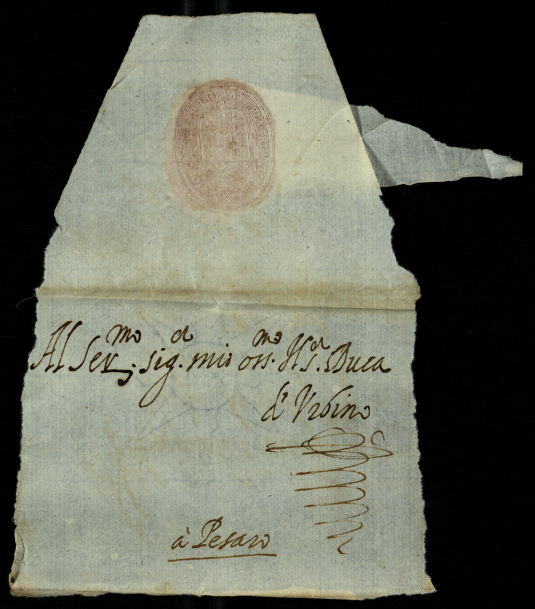 Al Ser.mo sig.r mio oss.mo Il S.r Duca
d'Urbino
à Pesaro